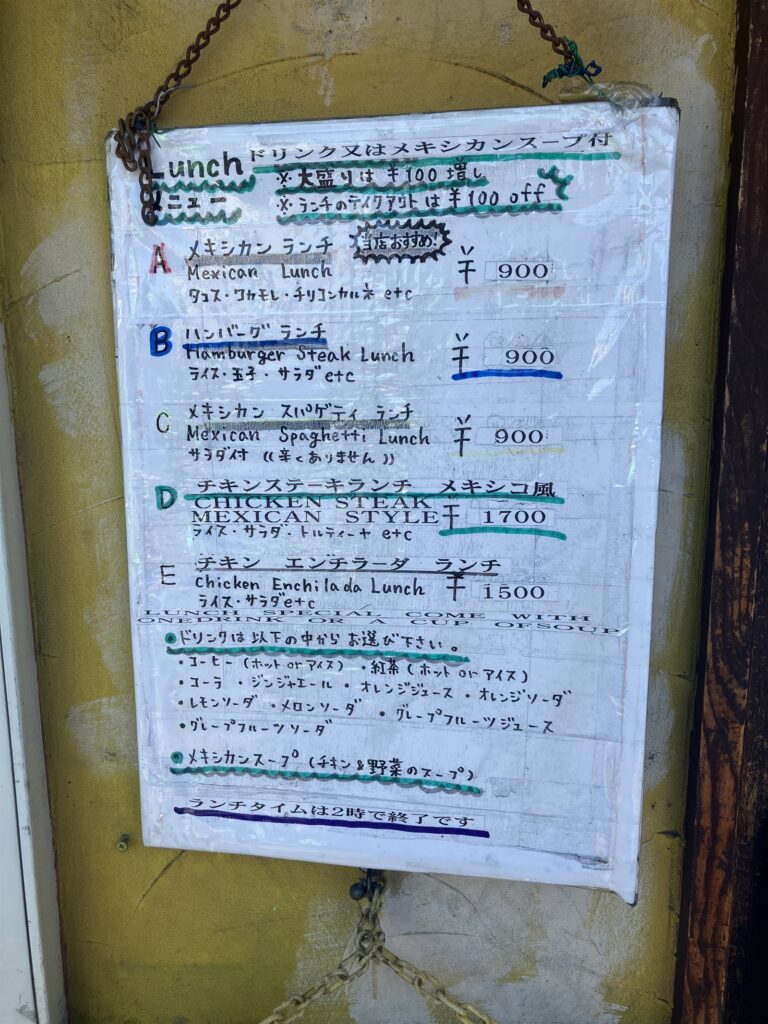 Lunch ドリンク又はメキシカンスープ付
メニュー ※大盛りは¥100増し
※ランチのテイクアウトは¥100 off
A メキシカン ランチ 当店おすすめ!
Mexican Lunch ¥ 900
タコス・ワカモレ・チリコンカルネ etc
B ハンバーグ ランチ
Hamburger Steak Lunch ¥ 900
ライス・玉子・サラダ etc
C メキシカン スパゲティ ランチ
Mexican Spaghetti Lunch ¥ 900
サラダ付 ((辛くありません))
D チキンステーキランチ メキシコ風
CHICKEN STEAK
MEXICAN STYLE ¥ 1700
ライス・サラダ・トルティーヤ etc
E チキン エンチラーダ ランチ
Chicken Enchilada Lunch ¥ 1500
ライス・サラダetc
LUNCH SPECIAL COME WITH
ONEDRINK OR A CUP OFSOUP
●ドリンクは以下の中からお選び下さい。
・コーヒー(ホット or アイス) ・紅茶(ホット or アイス)
・コーラ ・ジンジャエール ・オレンジジュース ・オレンジソーダ
・レモンソーダ ・メロンソーダ ・グレープフルーツジュース
・グレープフルーツソーダ
●メキシカンスープ(チキン&野菜のスープ)
ランチタイムは2時で終了です